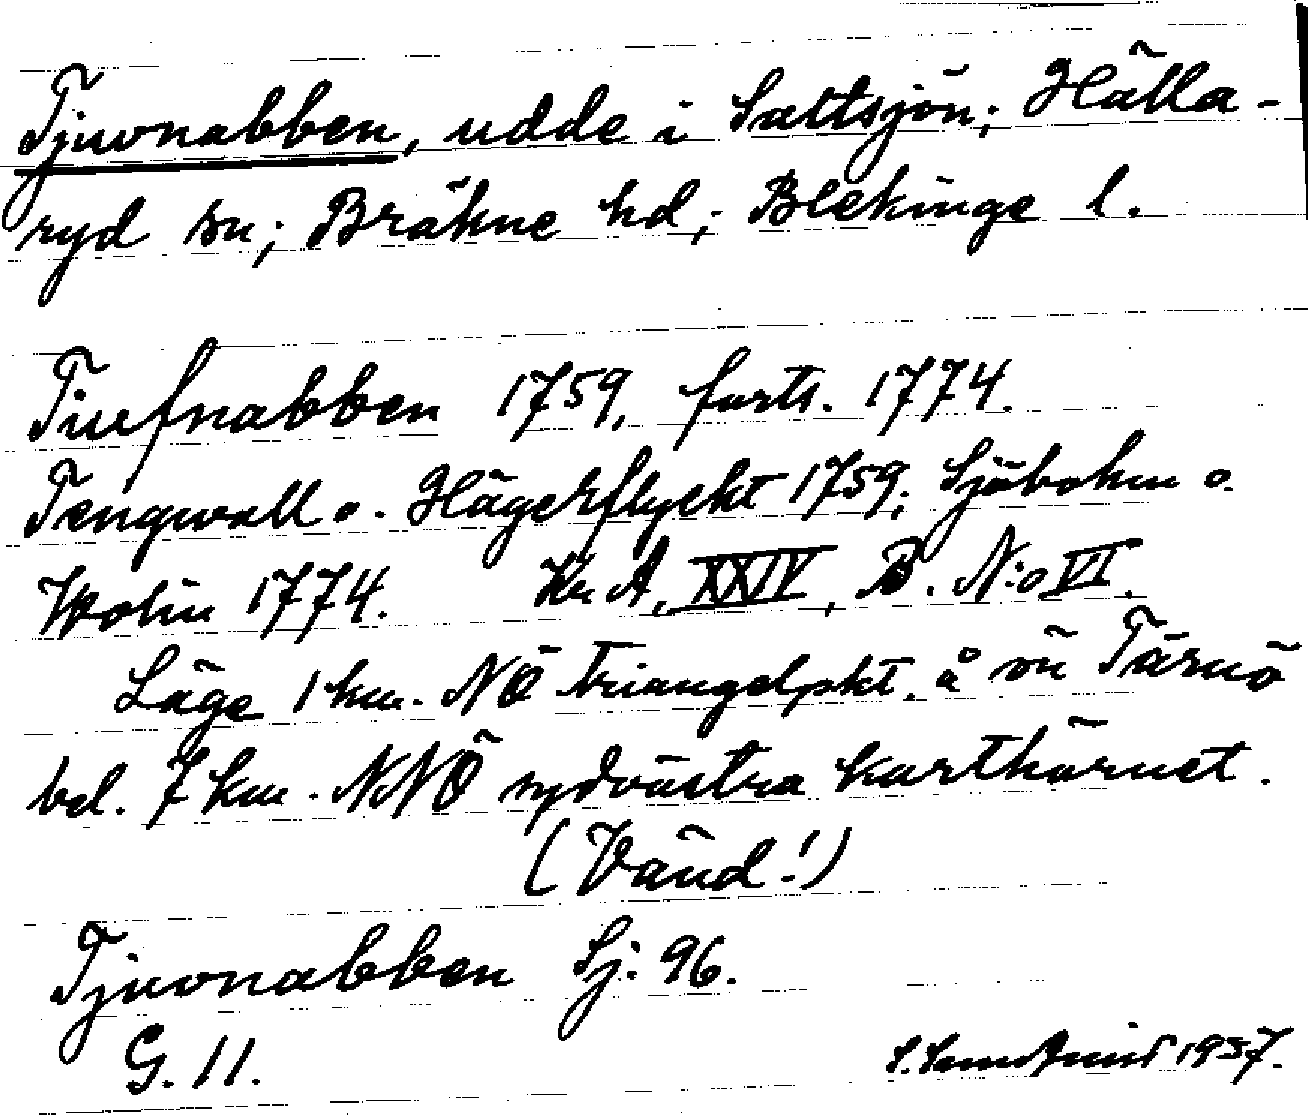 Tjuvnabben, udde i Saltsjön; Hälla-
ryd sn; Bräkne hd; Blekinge l.
Tiufnabben 1759, forts. 1774.
Tengwall o. Hägerflyckt 1759; Sjöbohm o.
Wolin 1774. Kr. A, XXIV, B. N:o VI.
Läge 1 km. NÖ triangelpkt. å ön Tärnö
bel. 7 km. NNÖ sydvästra karthörnet.
(Vänd!)
Tjuvnabben Sj: 96.
G. 11.
1937.